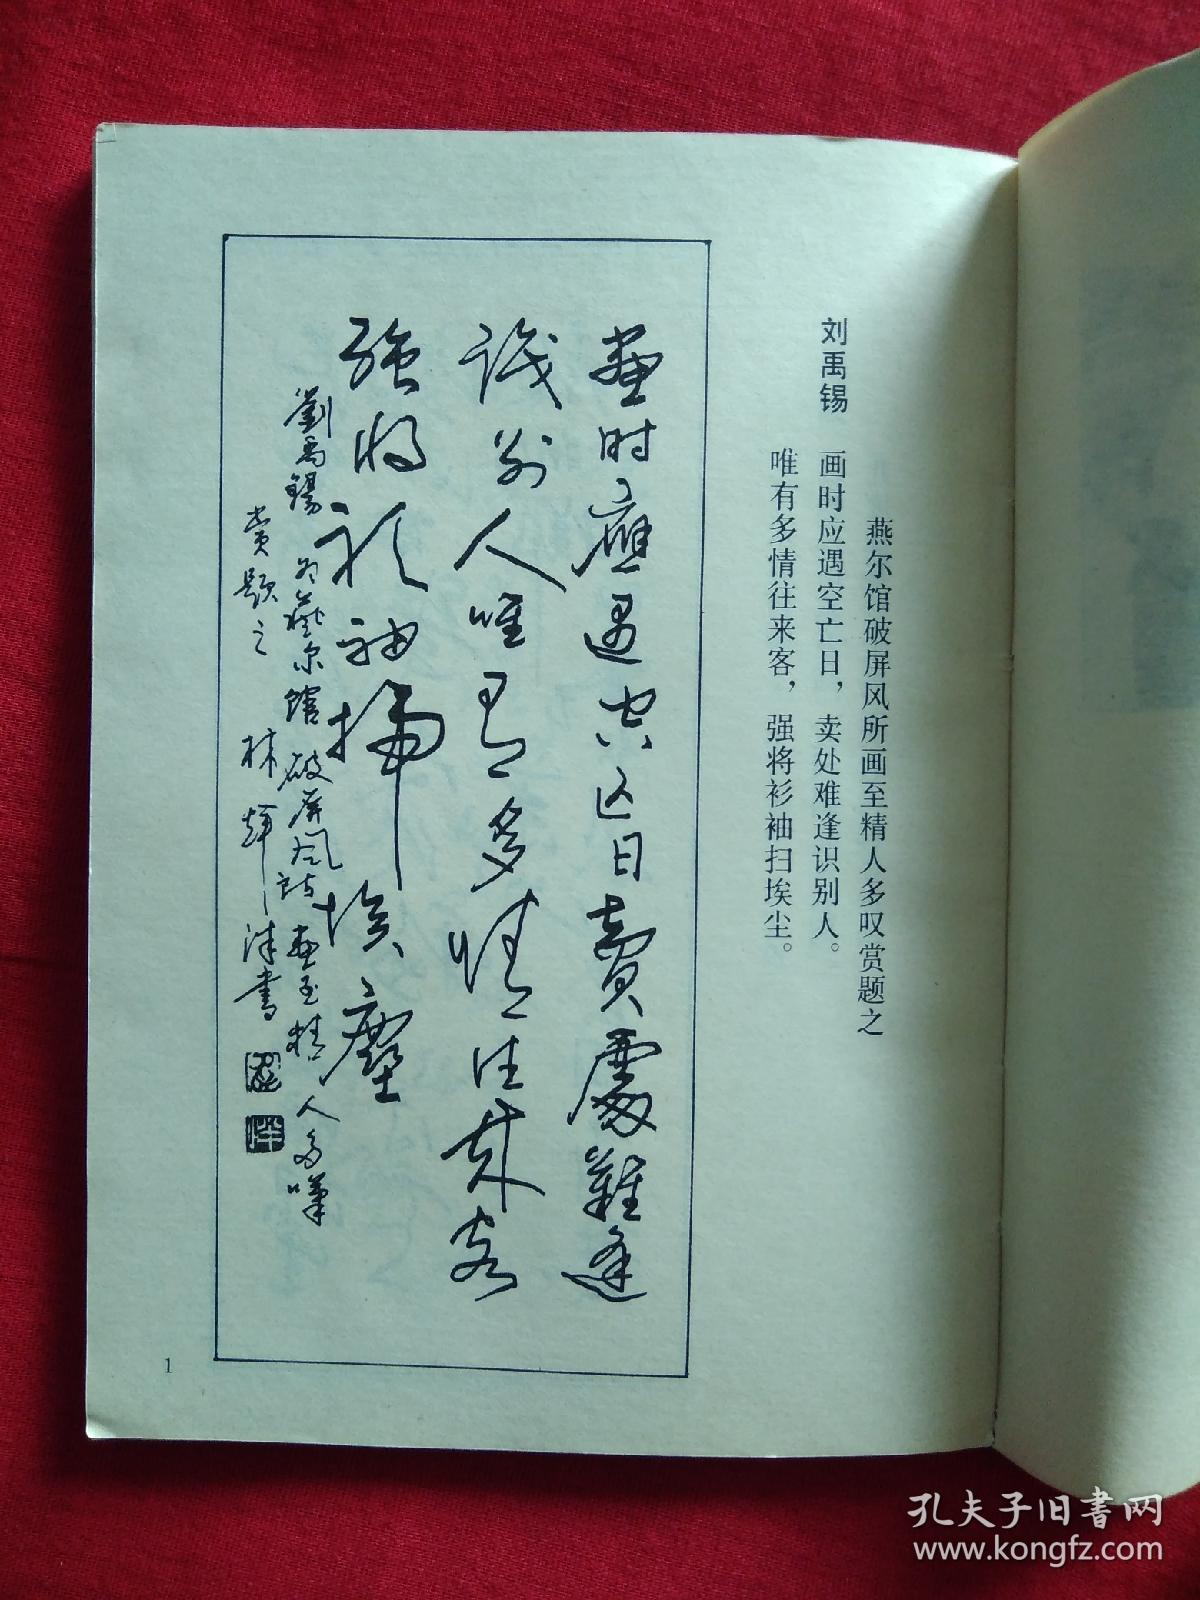 燕尔馆破屏风所画至精人多叹赏题之
刘禹锡
画时应遇空亡日，卖处难逢识别人。
唯有多情往来客，强将衫袖扫埃尘。
畫时應遇空亡日賣處難逢
識别人唯有多情往来客
强将衫袖掃埃塵
劉禹锡 为燕尔馆破屏风诗畫至精人多嘆
赏题之 林輝
書
1
孔夫子旧书网
www.kongfz.com